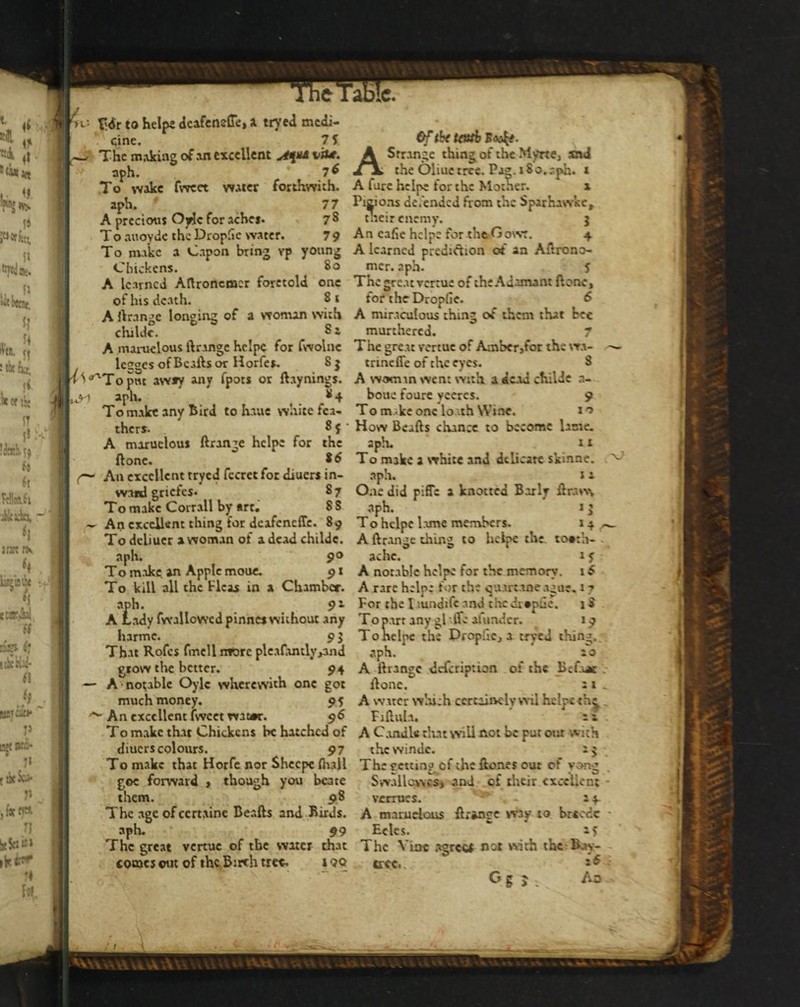 The Table.
For to helpe deafenesse, a tryed medi-
cine. 75
The making of an excellent Aqua vitæ.
aph. 76
To wake sweet water forthwith.
aph. 77
A precious Oyle for aches. 78
To auoyde the Dropsie water. 79
To make a Capon bring vp young
Chickens. 80
A learned Astronemer foretold one
of his death. 81
A strange longing of a woman with
childe. 82
A maruelous strange helpe for swolne
legges of Beasts or Horses. 83
To put away any spots or staynings.
aph. 84
To make any Bird to haue white fea-
thers. 85
A maruelous strange helpe for the
stone. 86
An excellent tryed secret for diuers in-
ward griefes. 87
To make Corrall by art. 88
An excellent thing for deafenesse. 89
To deliuer a woman of a dead childe.
aph. 90
To make an Apple moue. 91
To kill all the Fleas in a Chamber.
aph. 92
A Lady swallowed pinnes without any
harme. 93
That Roses smell more pleasantly, and
grow the better. 94
A notable Oyle wherewith one got
much money. 95
An excellent sweet water. 96
To make that Chickens be hatched of
diuers colours. 97
To make that Horse nor Sheepe shall
goe forward, though you beate
them. 98
The age of certaine Beasts and Birds.
aph. 99
The great vertue of the water that
comes out of the Birch tree. 100
Of the tenth Booke.
A Strange thing of the Myrte, and
the Oliue tree. Pag. 180. aph. 1
A sure helpe for the Mother. 2
Pigions defended from the Sparhawke,
their enemy. 3
An easie helpe for the Gowt. 4
A learned prediction of an Astrono-
mer. aph. 5
The great vertue of the Adamant stone,
for the Dropsie. 6
A miraculous thing of them that bee
murthered. 7
The great vertue of Amber, for the wa-
trinesse of the eyes. 8
A woman went with a dead childe a-
boue foure yeeres. 9
To make one loath Wine. 10
How Beasts chance to become lame.
aph. 11
To make a white and delicate skinne.
aph. 12
One did pisse a knotted Barly straw,
aph. 13
To helpe lame members. 14
A strange thing to helpe the tooth-
ache. 15
A notable helpe for the memory. 16
A rare helpe for the quartane ague. 17
For the Iaundise and the dropsie. 18
To part any glasse asunder. 19
To helpe the Dropsie, a tryed thing.
aph. 20
A strange description of the Befaar
stone. 21
A water which certainely wil helpe the
Fistula. 22
A Candle that will not be put out with
the winde. 23
The getting of the stones out of yong
Swallowes, and of their excellent
vertues. 24
A maruelous strange way to breede
Eeles. 25
The Vine agrees not with the Bay-
tree. 26
Gg 3. An